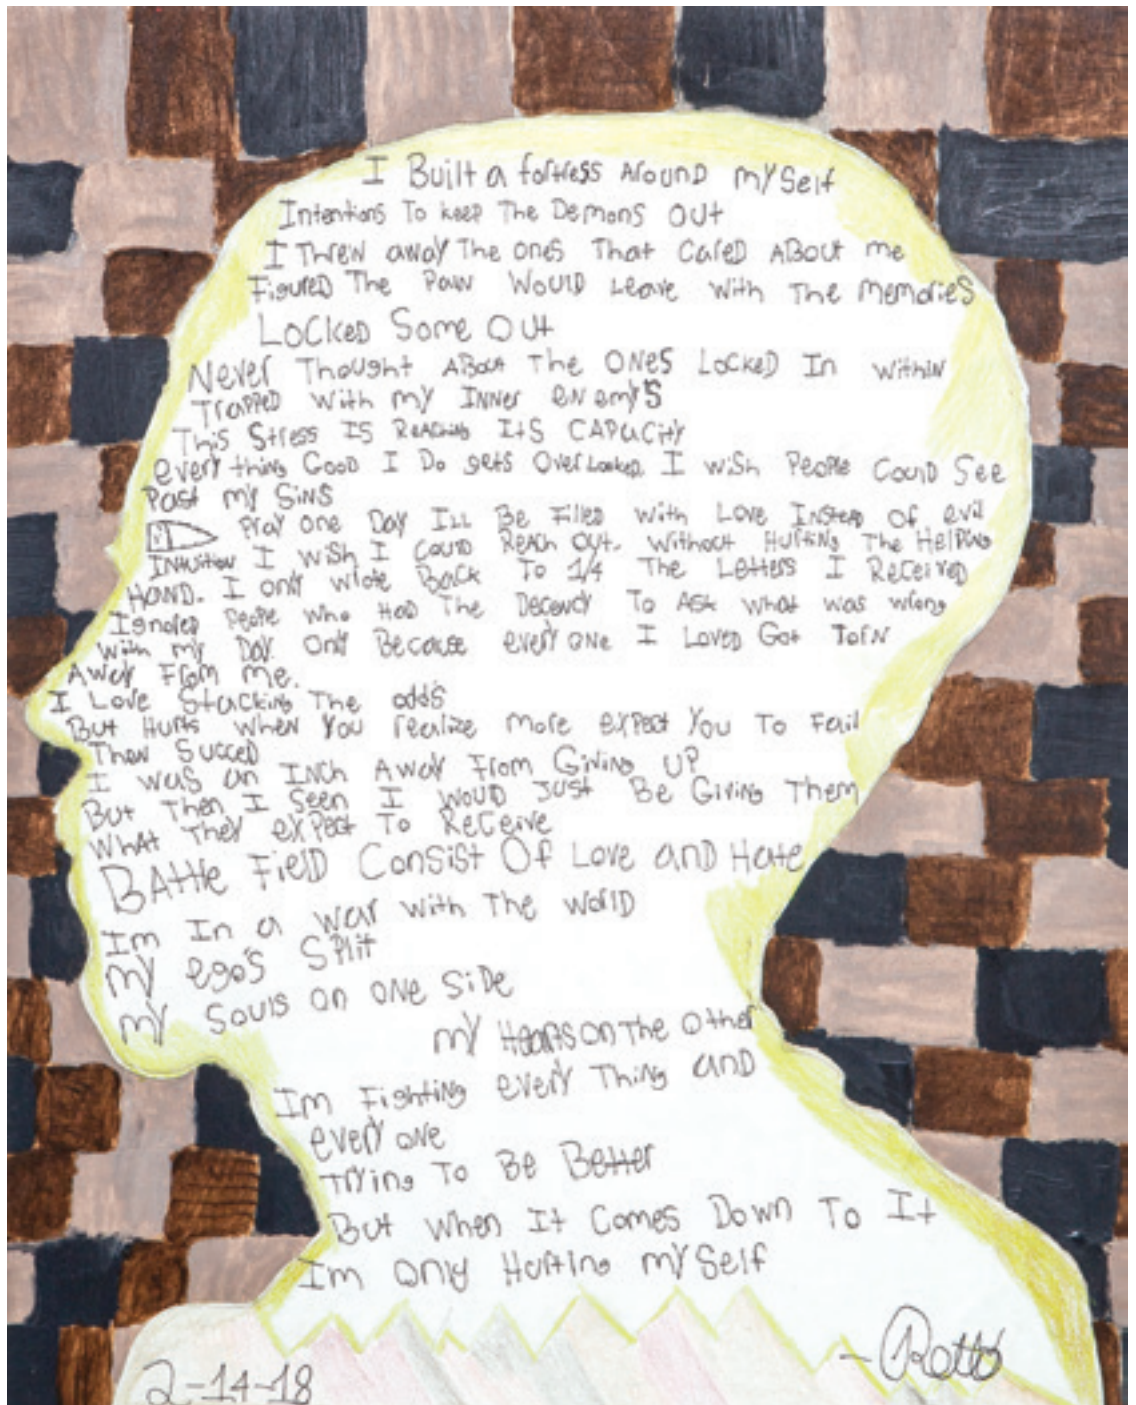 I Built a fortress Around mySelf
Intentions To keep The Demons Out
I Threw away The ones That Cared About me
Figured The Pain Would Leave with The memories
Locked Some Out
Never Thought About The Ones Locked In within
Trapped with my Inner enemy's
This Stress Is Reaching Its Capacity
every thing Good I Do gets Overlooked. I wish People Could See
Past my Sins
Pray one Day Ill Be Filled with Love Instead of evil
Intuition I wish I Could Reach Out. Without Hurting The Helping
Hand. I only wrote Back To 1/4 The Letters I Received
Ignored People who Had The Decency To Ask what was wrong
with my Day. Only Because every one I Loved Got Torn
Away From me.
I Love Stacking The odds
But Hurts when You realize more expect You To Fail
Then Succed
I was an Inch Away From Giving Up
But Then I Seen I would Just Be Giving Them
What They expect To Receive
Battle Field Consist Of Love and Hate
Im In a war with The world
my ego's Split
my Souls on one Side
my Hearts on The Other
Im Fighting every Thing and
every one
Trying To Be Better
But when It Comes Down To It
Im only Hurting mySelf
2-14-18